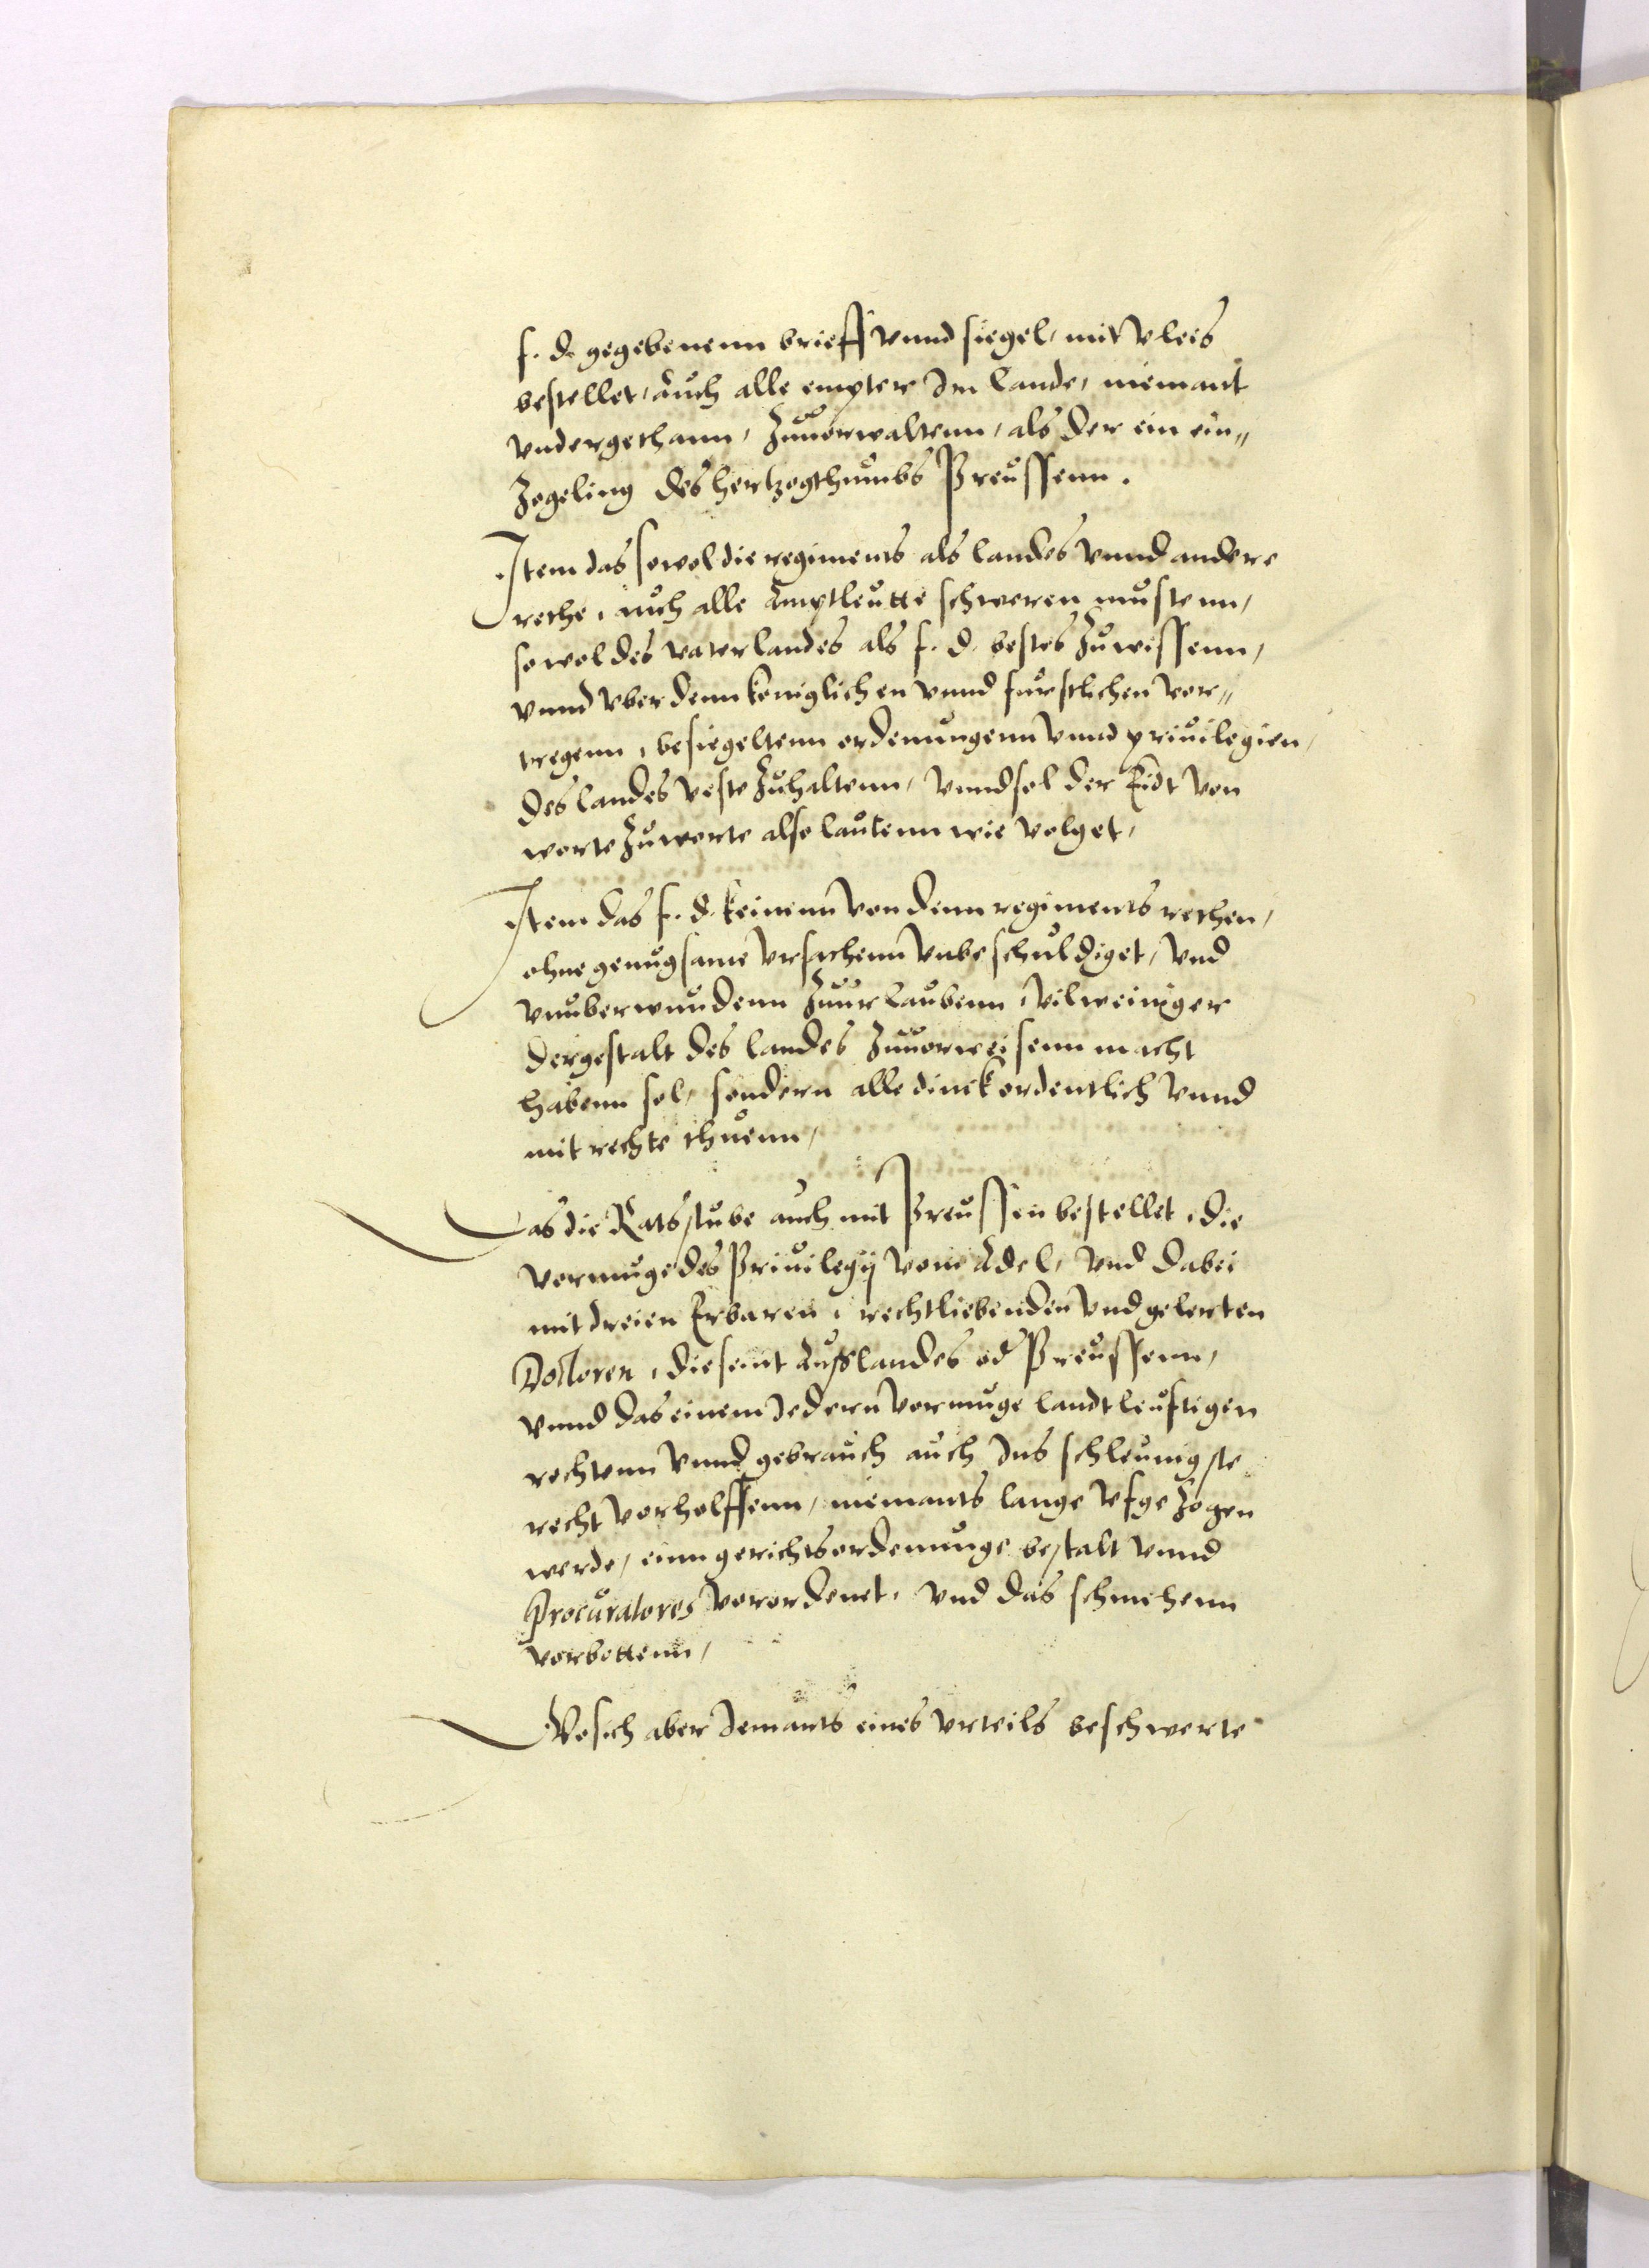 f. d. gegebenenn brieff vnnd siegel, mit vleis
bestellet, Auch alle empter Im lande, niemant
vndergethann, Zuuorwaltenn, als der ein ein„
Zogeling des hertzogthumbs Preussenn.
Item das sowol die regiments als landes vnnd andere
rethe, auch alle Amptleutte schweren mustenn,
sowol des vaterlandes als f. d. bestes Zuwissenn,
vnnd vber denn koniglichen vnnd furstlichen vor„
tregenn, besiegeltenn ordenungenn vnnd priuilegien,
des landes veste Zuhaltenn, vnnd sol der Eidt von
worte Zuworte also lautenn wie volget,
Item das f. d. keinenn von denn regiments rethen,
ohne genugsame vrsachenn vnbeschuldiget, vnd
vnuberwundenn Zuurlaubenn, vilweiniger
dergestalt des landes Zuuorweisenn macht
habenn sol, sondern alle dinck ordentlich vnnd
mit rechte thuenn,
Das die Ratsstube auch mit Preussen bestellet, die
vormuge des Priuilegij vom Adel, vnd dabei
mit dreien Erbaren, rechtliebenden vnd gelerten
Doctoren, die seint Ausslandes od Preussenn,
vnnd das einem Iedernn vormuge landtleuftigen
rechtenn vnnd gebrauch auch Ins schleunigste
recht vorholffenn, niemants lange vfgeZogen
werde, einn gerichtsordenunge bestalt vnnd
Procuratores vorordenet, vnd das schmehenn
vorbottenn,
Wo sich aber Iemants eines vrteils beschwerte